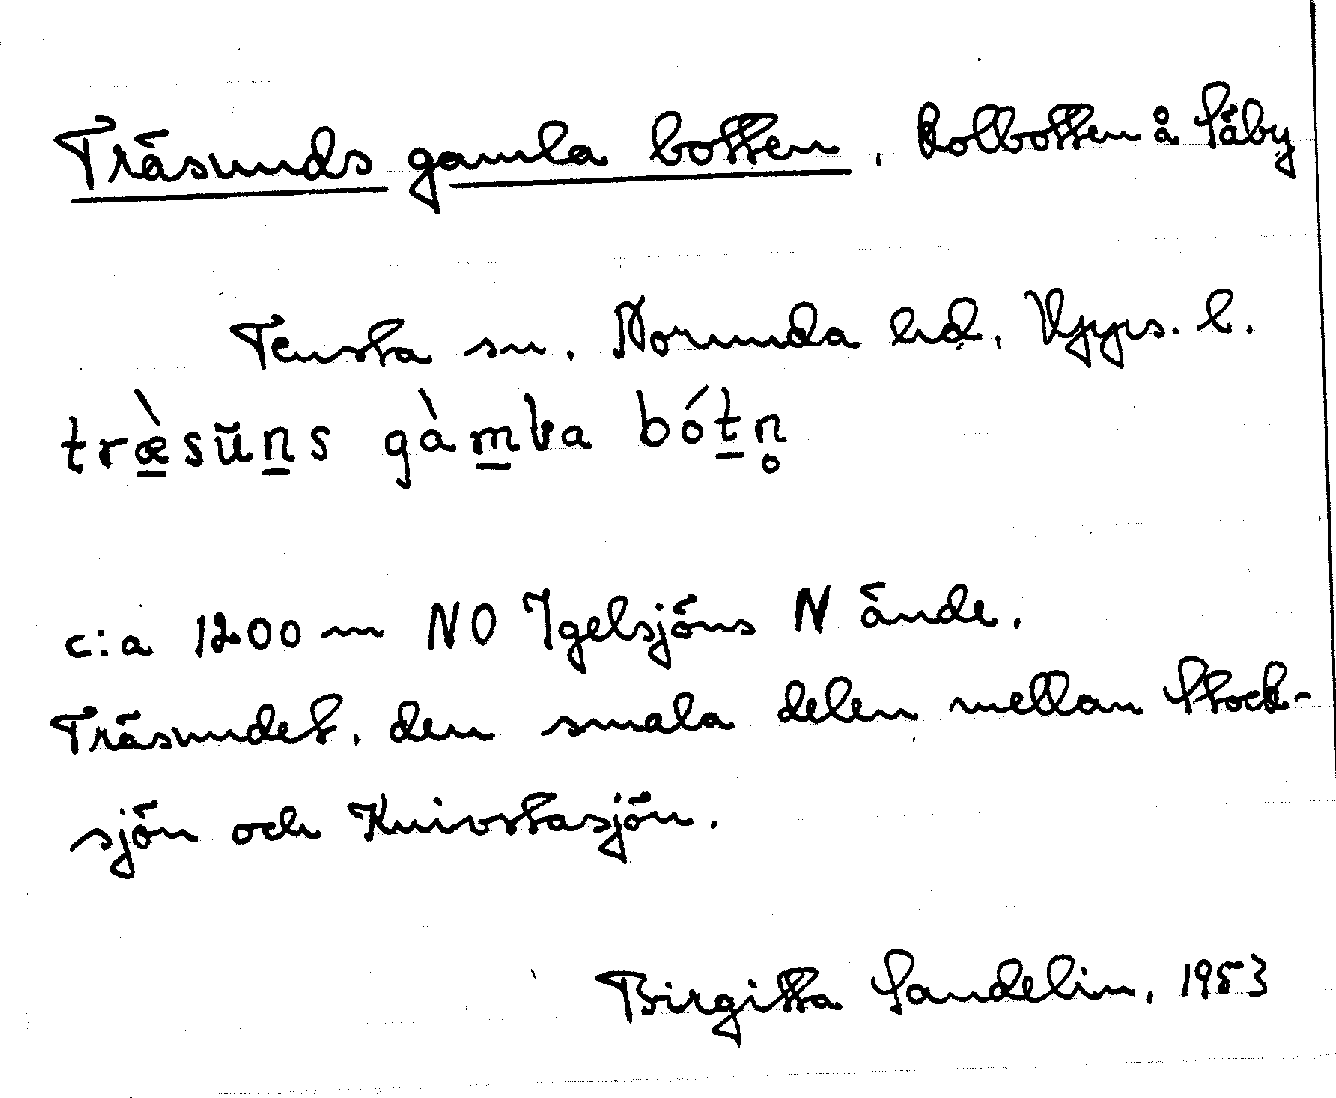 Träsunds gamla botten, Kolbotten å Säby
Tensta sn. Norunda hd. Upps. l.
træ̀sŭns gàmla bótn̥
c:a 1200 m NO Igelsjöns N ände.
Träsundet, den smala delen mellan Stock-
sjön och Knivstasjön.
Birgitta Sandelin, 1953